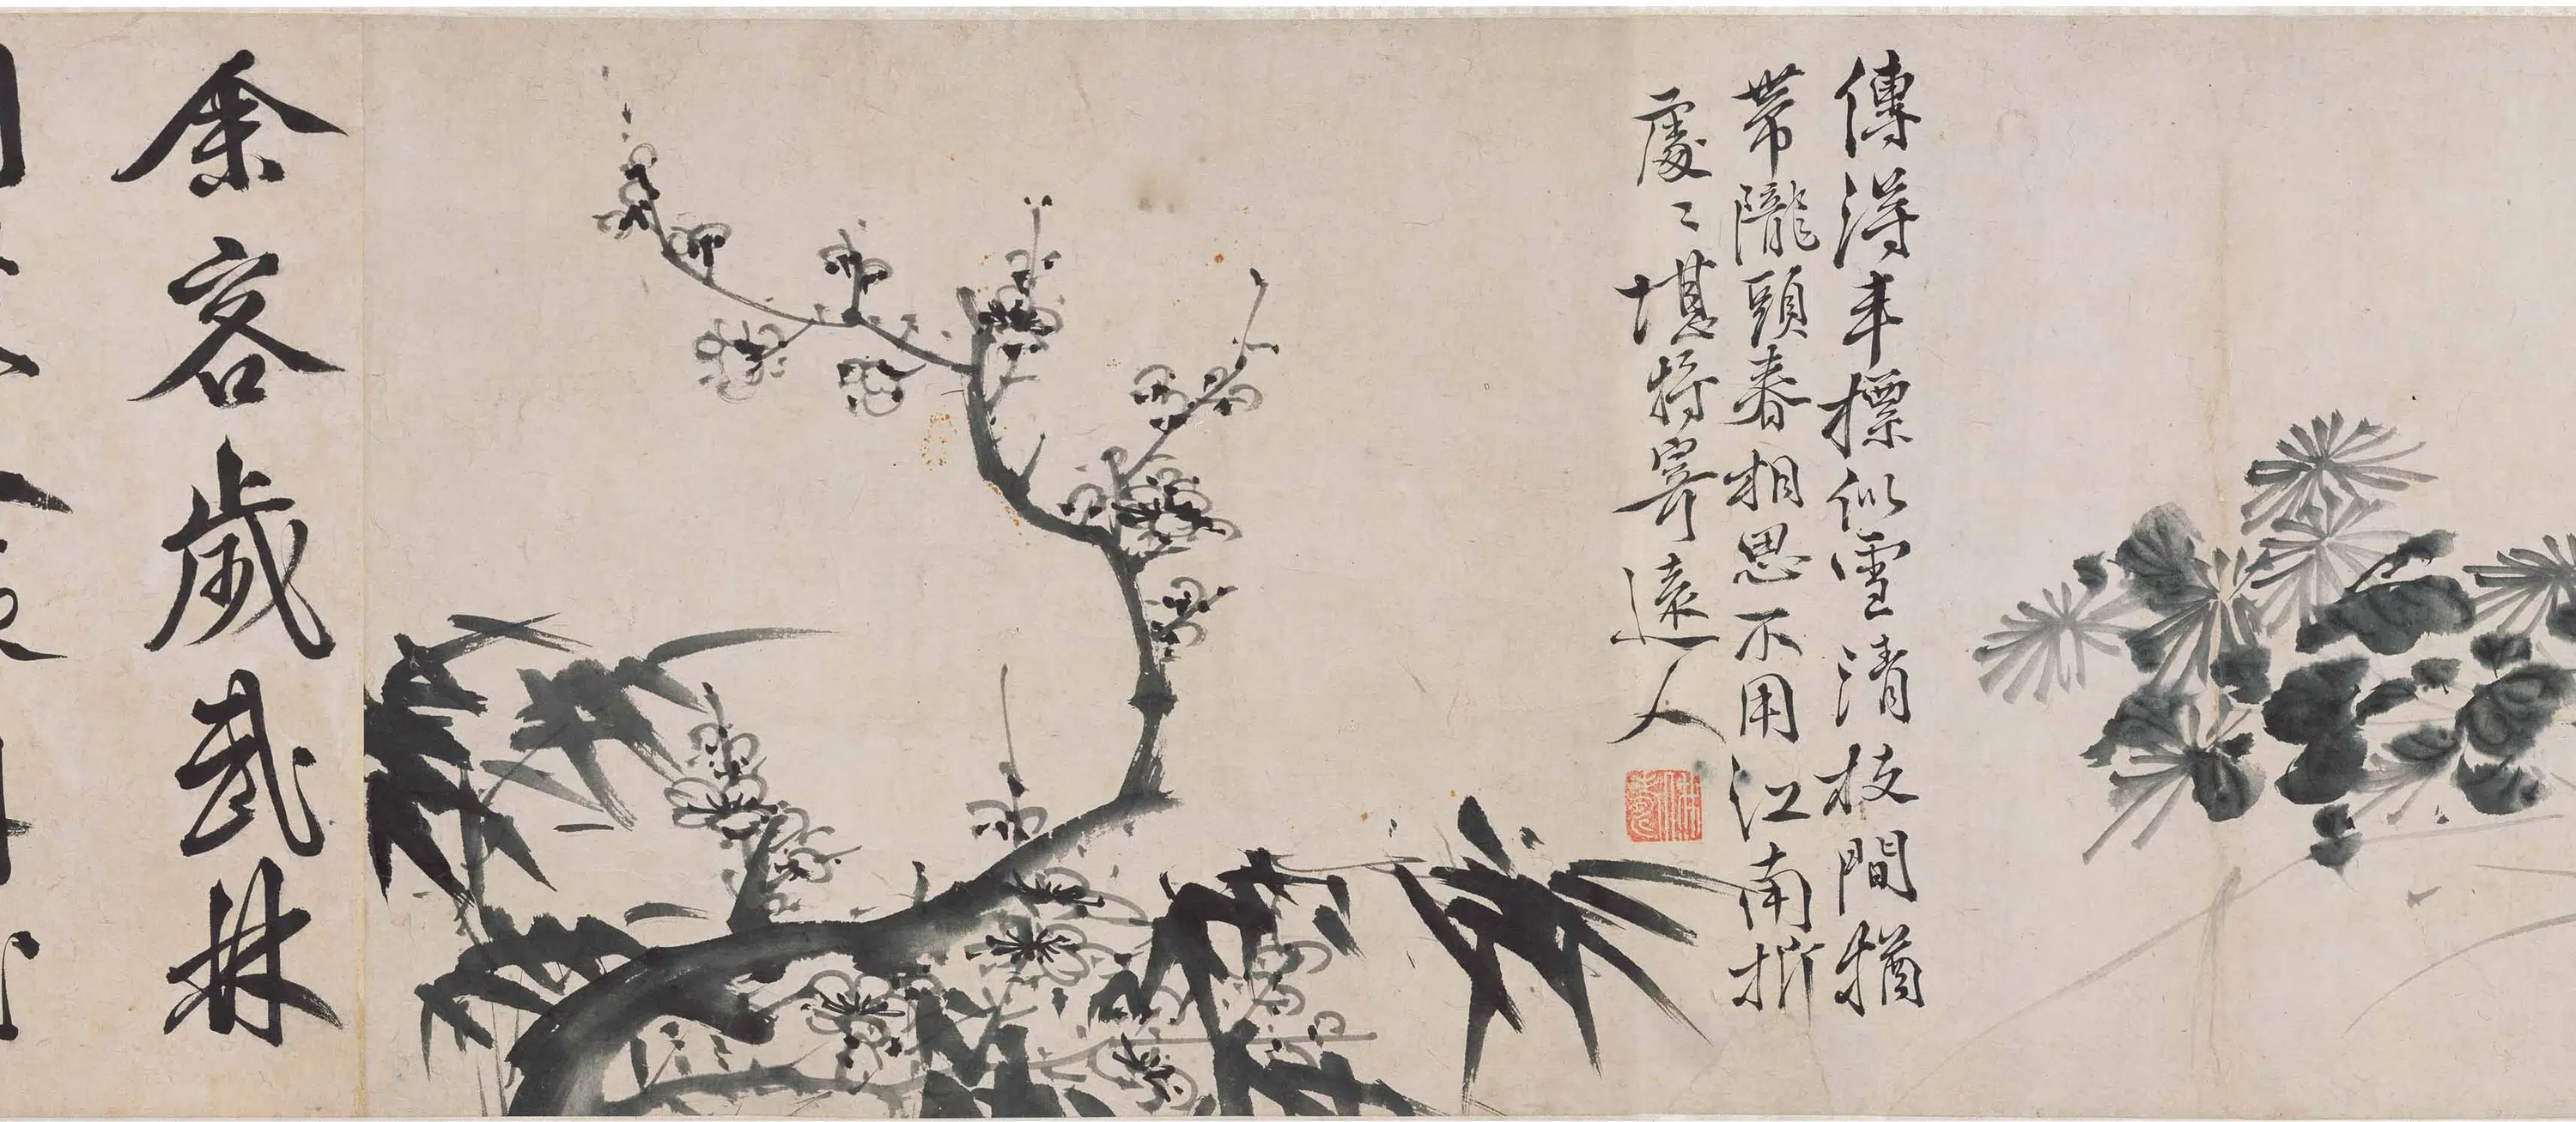 傳得丰標似雪清枝間猶
帶隴頭春相思不用江南折
處〻堪將寄遠人
余客歲武林